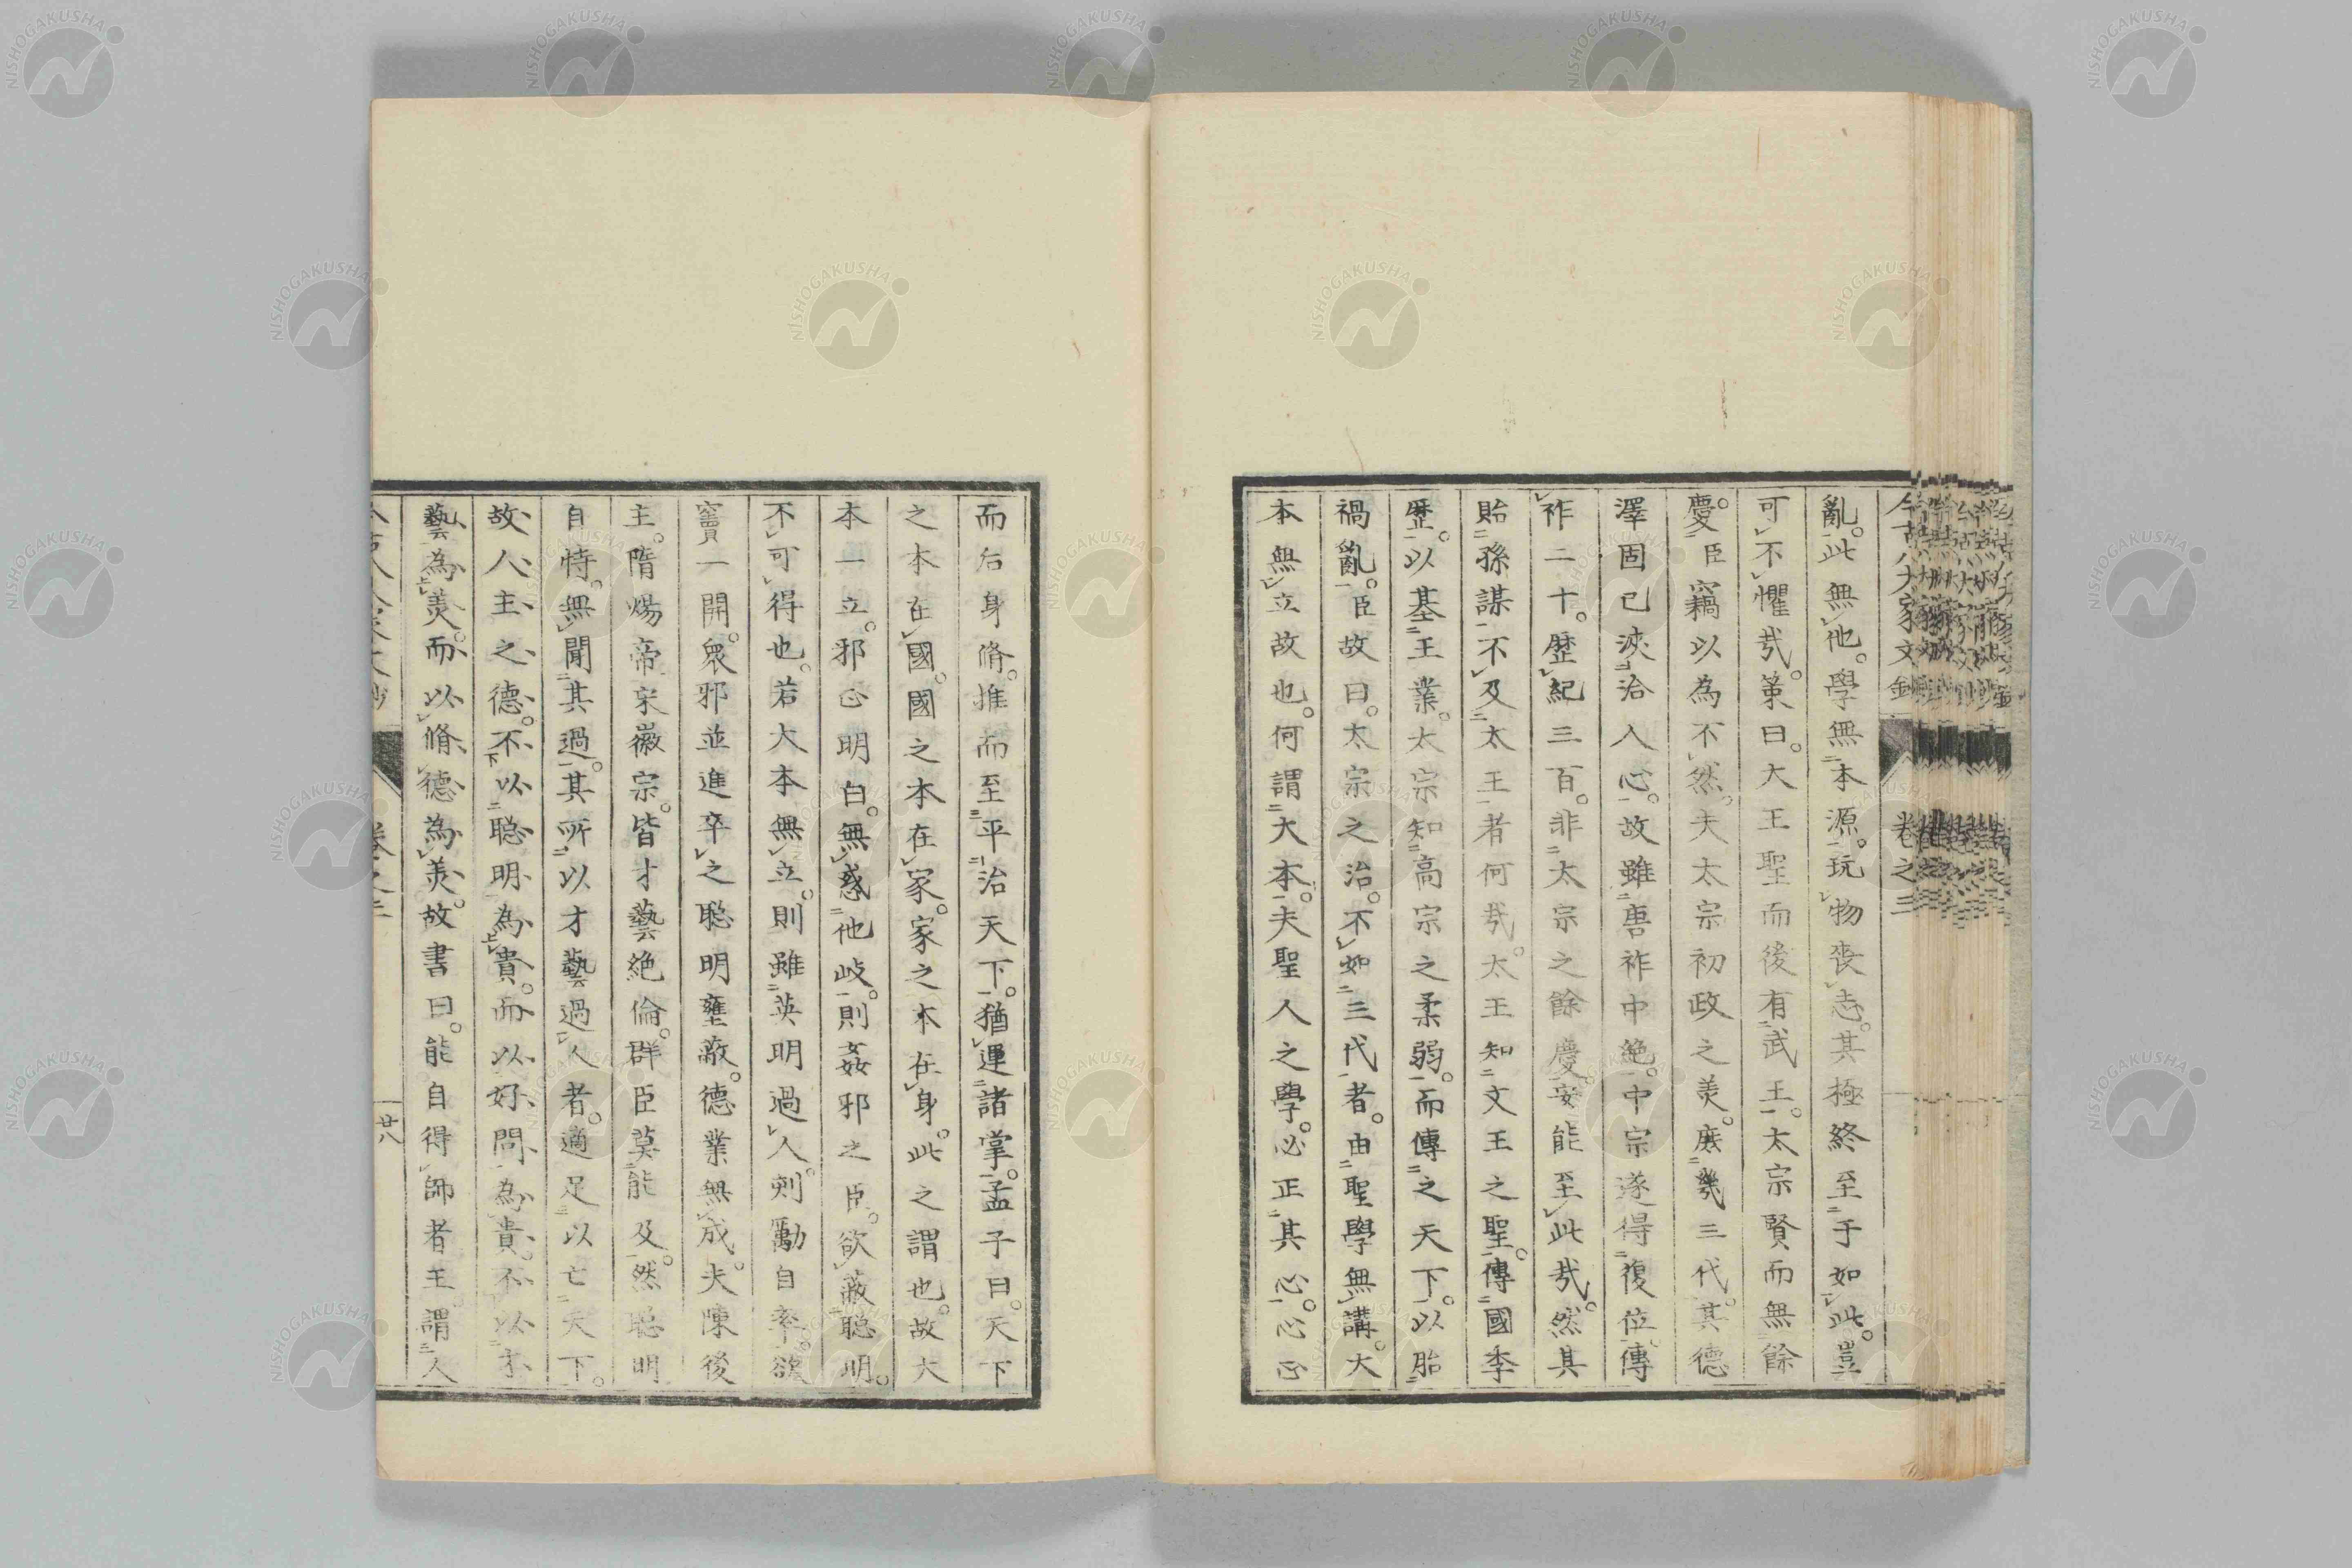 亂。此無他。學無本源。玩物喪志。其極終至于如此。豈
可不懼哉。策曰。大王聖而後有武王。太宗賢而無餘
慶。臣竊以為不然。夫太宗初政之美。庶幾三代。其德
澤固已浹洽人心。故雖唐祚中絶。中宗遂得復位。傳
祚二十。歷紀三百。非太宗之餘慶安能至此哉。然其
貽孫謀不及太王者何哉。太王知文王之聖。傳國季
歷。以基王業。太宗知高宗之柔弱。而傳之天下。以胎
禍亂。臣故曰。太宗之治。不如三代者。由聖學無講。大
本無立故也。何謂大本。夫聖人之學。必正其心。心正
而后身脩。推而至平治天下。猶運諸掌。孟子曰。天下
之本在國。國之本在家。家之本在身。此之謂也。故大
本一立。邪正明白。無惑他歧。則姦邪之臣。欲蔽聰明。
不可得也。若大本無立。則雖英明過人。剡勵自率。欲
竇一開。衆邪並進。卒之聡明壅蔽。德業無成。夫陳後
主。隋煬帝宋徽宗。皆才藝絶倫。群臣莫能及。然聡明
自恃。無聞其過。其所以才藝過人者。適足以亡天下。
故人主之德。不以聡明為貴。而以好問為貴。不以才
藝為美。而以脩德為美。故書曰。能自得師者王。謂人
卷之三
廿八